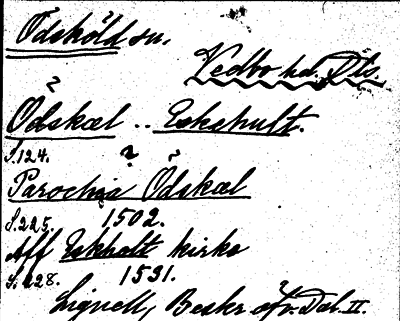 Ödskölds sn.
Vedbo hd. Dls.
Ödskæl .. Eskehult.
S. 124.
?
Parochia Ödskæl
S. 225. 1502.
Aff Eskholt kirke
S. 228. 1531.
Lignell, Beskr. öfv. Dal. II.